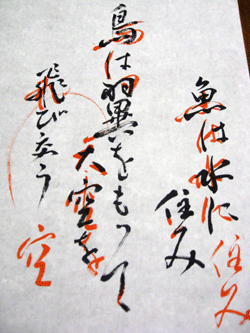 魚は水に
住み
住み
鳥は羽翼をもって
大空を
飛び交う
空